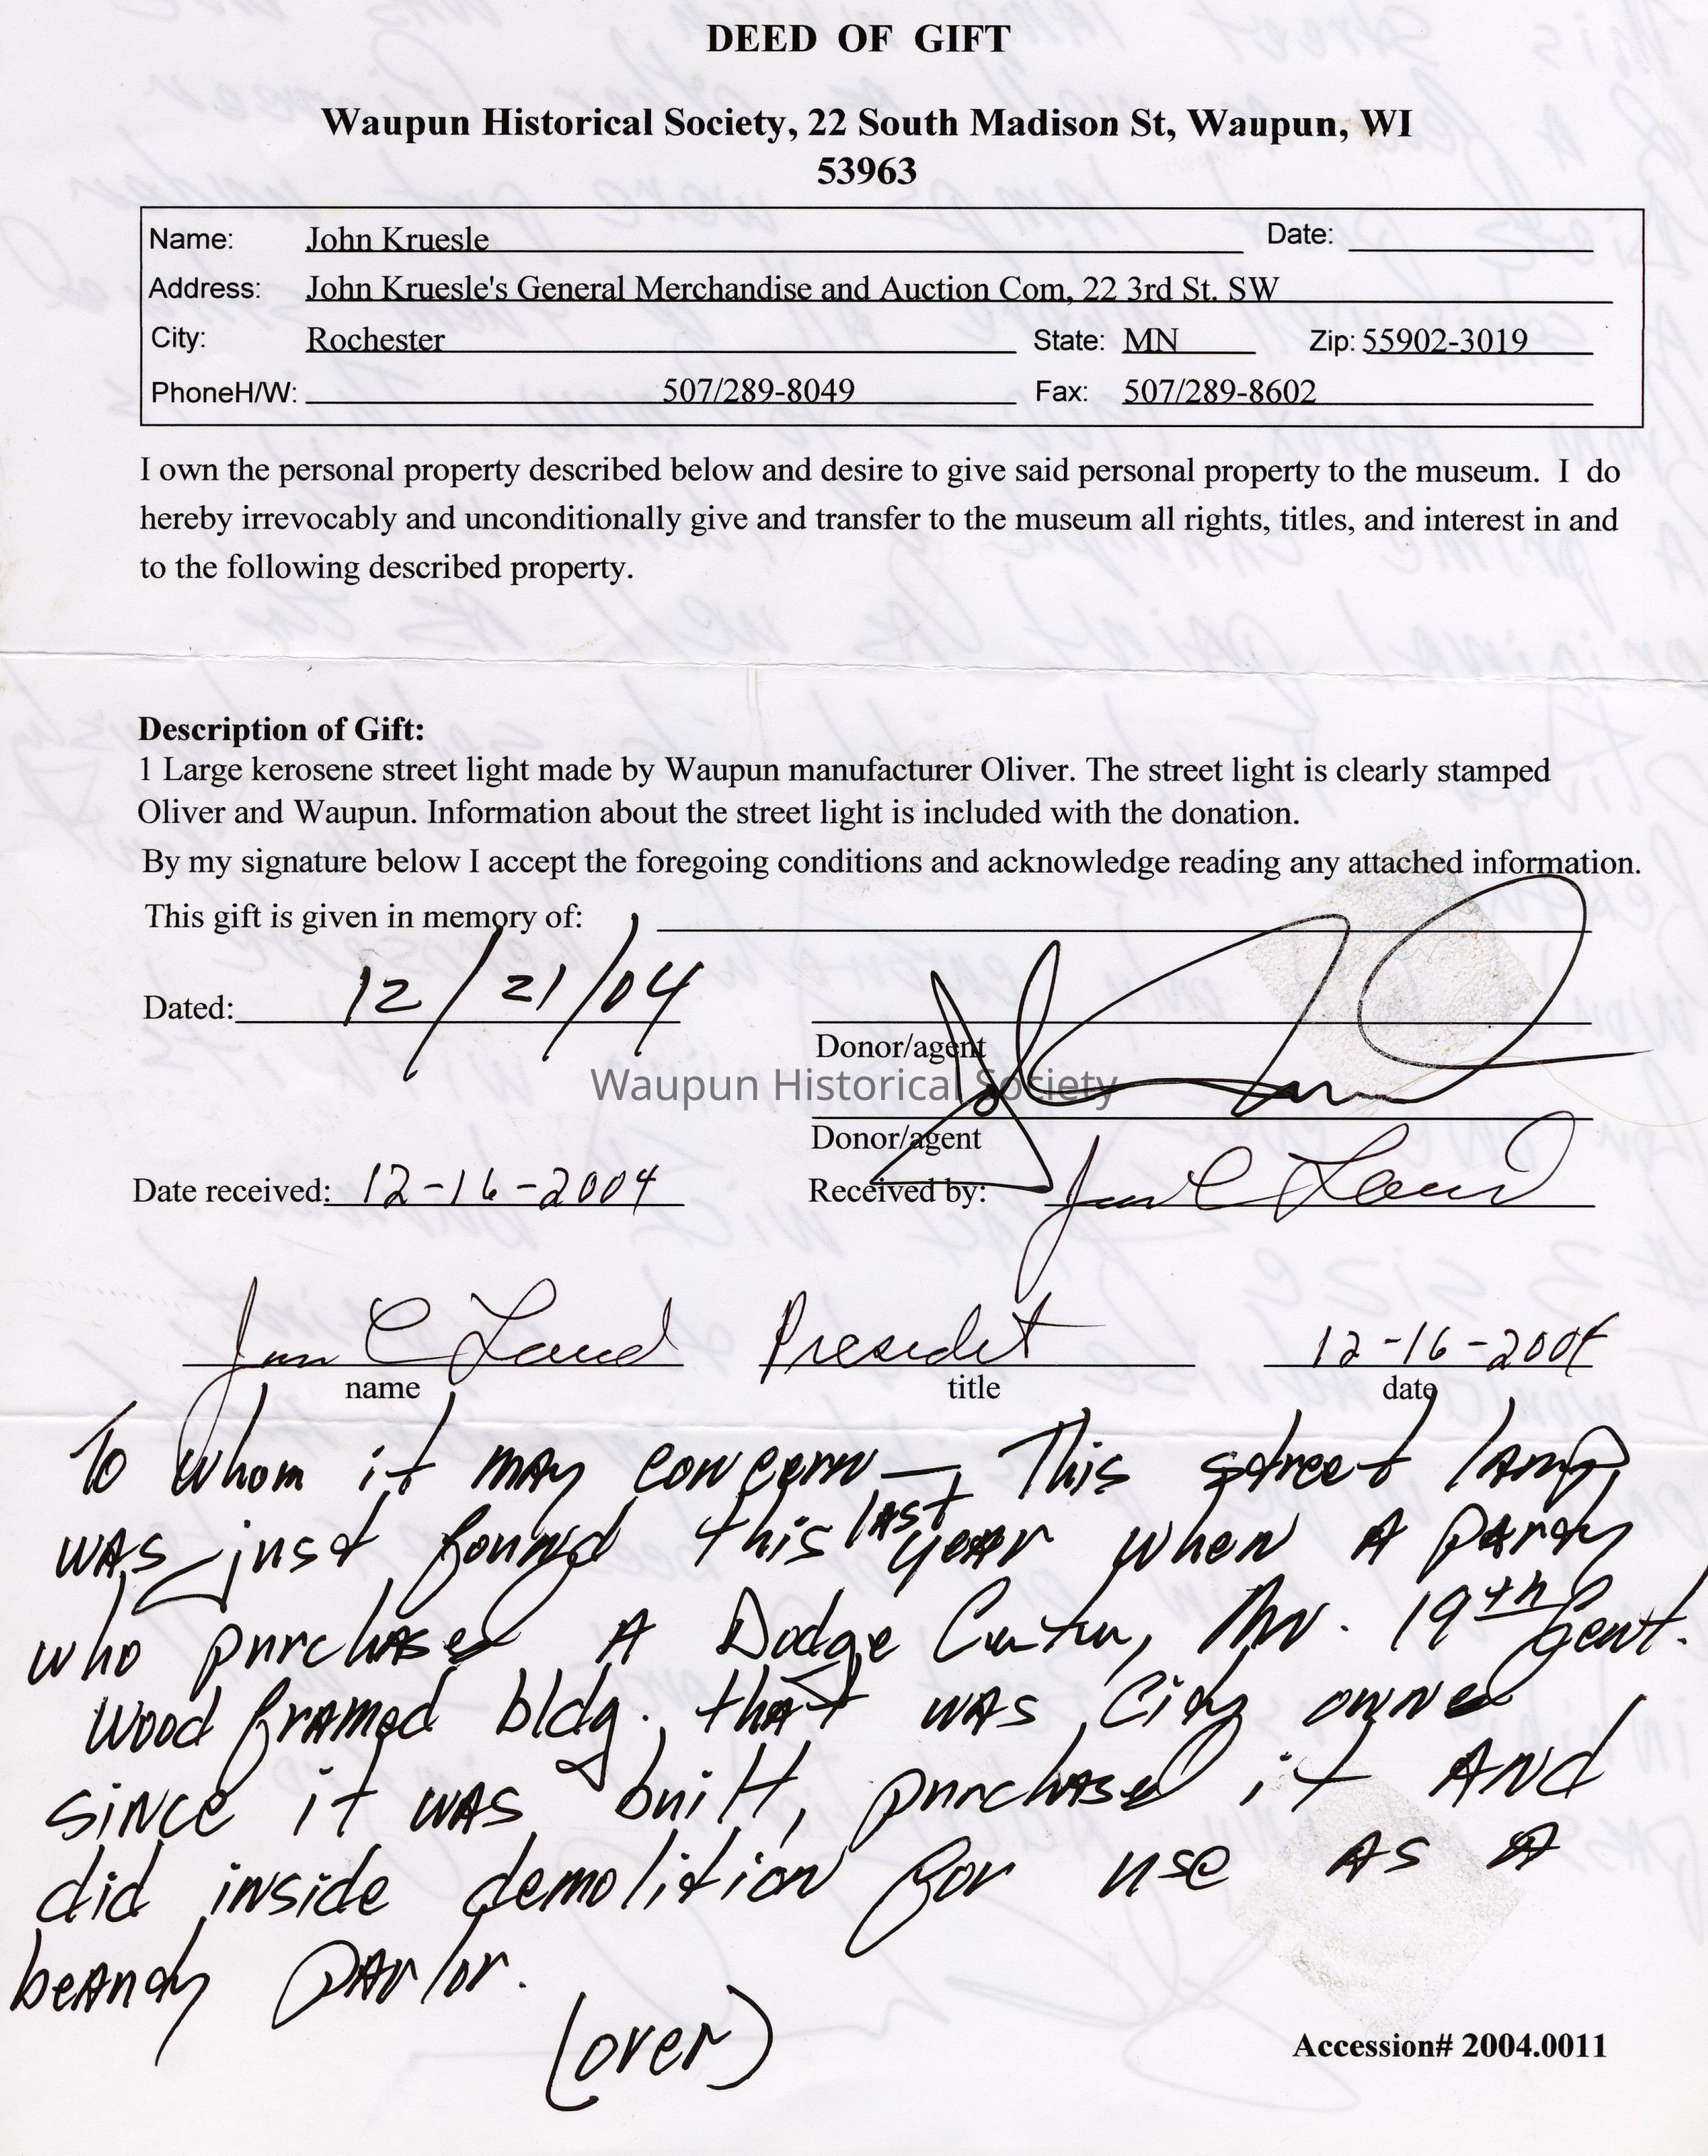 DEED OF GIFT
Waupun Historical Society, 22 South Madison St, Waupun, WI
53963
Name: John Kruesle Date:
Address: John Kruesle's General Merchandise and Auction Com, 22 3rd St. SW
City: Rochester State: MN Zip: 55902-3019
PhoneH/W: 507/289-8049 Fax: 507/289-8602
I own the personal property described below and desire to give said personal property to the museum. I do
hereby irrevocably and unconditionally give and transfer to the museum all rights, titles, and interest in and
to the following described property.
Description of Gift:
1 Large kerosene street light made by Waupun manufacturer Oliver. The street light is clearly stamped
Oliver and Waupun. Information about the street light is included with the donation.
By my signature below I accept the foregoing conditions and acknowledge reading any attached information.
This gift is given in memory of:
Dated: 12/21/04
Donor/agent
Waupun Historical Society
Donor/agent
Date received: 12-16-2004 Received by: Jim C Laird
Jim C Laird Presidet 12-16-2004
name title date
To whom it may concern—, This street lamp
was just found this last year when A party
who purchased A Dodge Center, Mn. 19th Cent.
wood framed bldg. that was City owned
since it was built, purchased it And
did inside demolition for use as a
beauty parlor.
(over)
Accession# 2004.0011